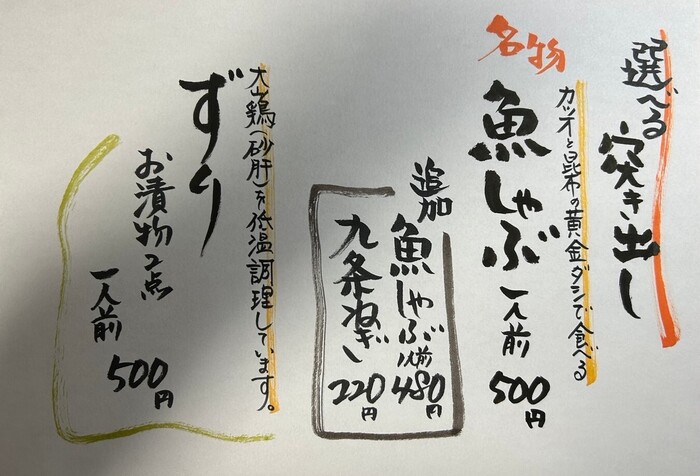 選べる突き出し
名物
カツオと昆布の黄金ダシで食べる
魚しゃぶ 一人前 500円
追加
魚しゃぶ 1人前 480円
九条ねぎ 220円
大山鶏(砂肝)を低温調理しています。
ずり
お漬物2点
一人前 500円